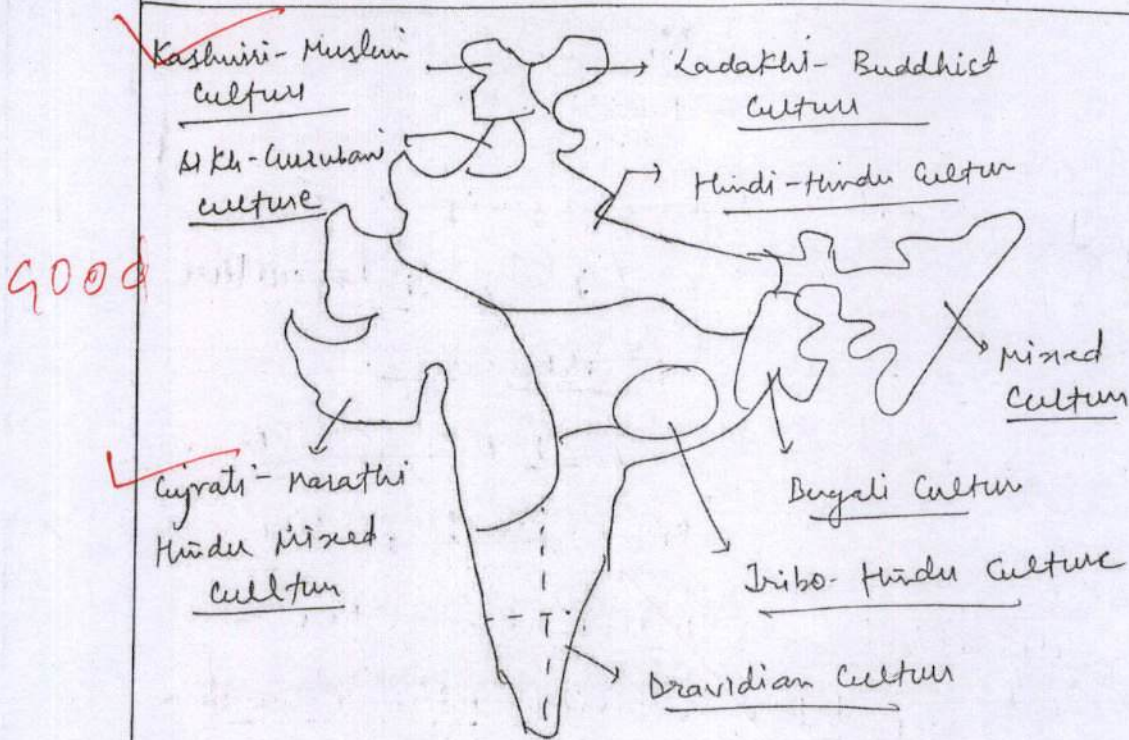 Kashmiri- Muslim
Culture
Ladakhi- Buddhist
Culture
Sikh-Gurubani
culture
Hindi-Hindu Culture
GOOD
Mixed
Culture
Gujrati- Marathi
Hindu Mixed
Cullture
Bengali Culture
Tribo- Hindu Culture
Dravidian Culture